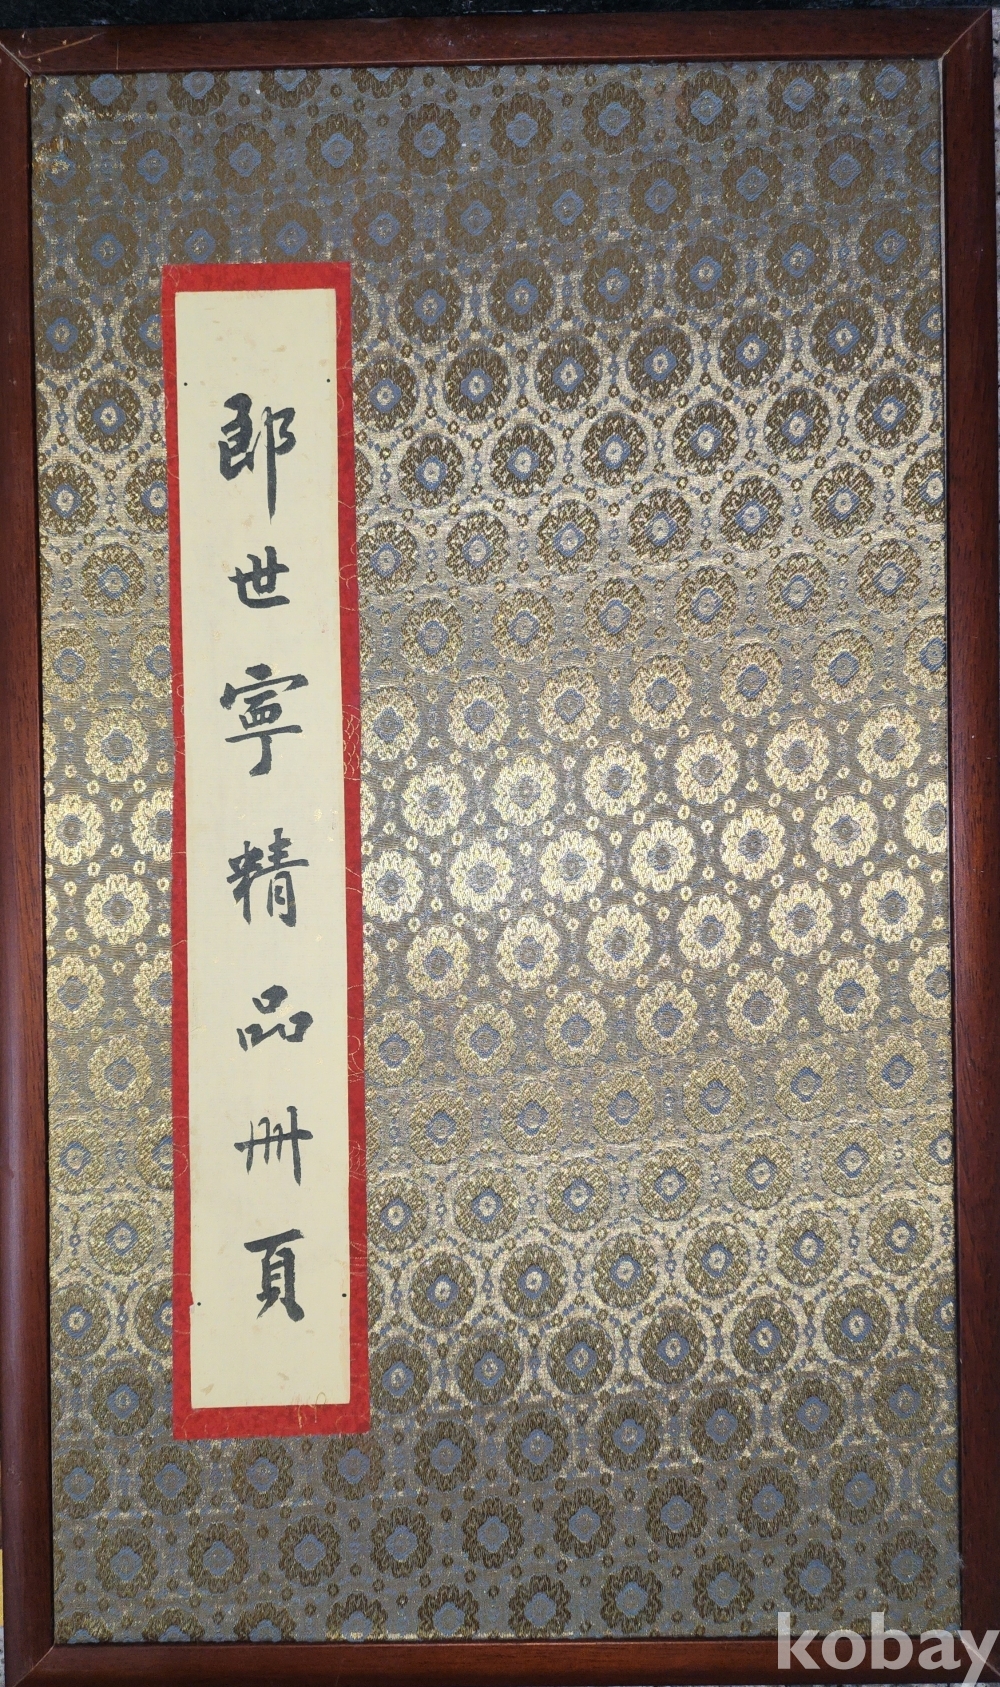 郎世寧精品冊頁
kobay